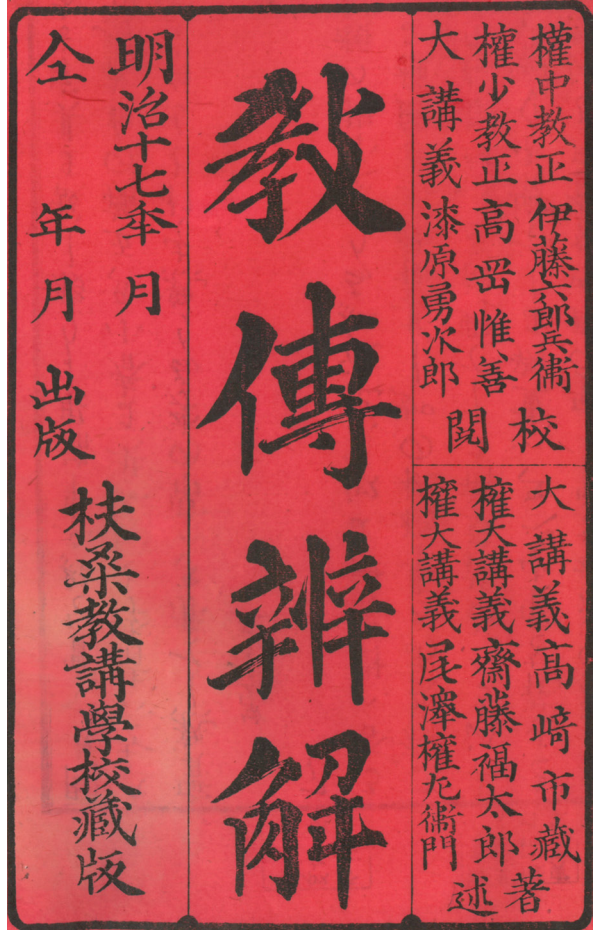 權中教正 伊藤六郎兵衞
權少教正 高岡惟善
大講義 漆原勇次郎
校閲
大講義 高﨑市藏
權大講義 齋藤福太郎
權大講義 尾澤權九衞門
著述
教傳辨解
明治十七年 月
仝 年 月 出版
扶桑教講學校藏版